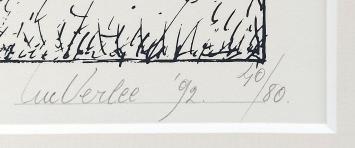 Luc Verlee '92. 40/80.